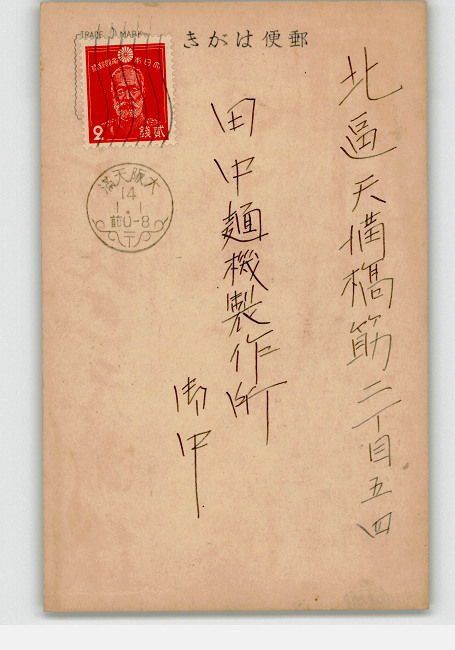 きがは便郵
TRADE MARK
大日本帝國郵便
2
貳錢
大阪天満
14
1.1
前0-8
北區天満橋筋二丁目五四
田中麺機製作所
御中